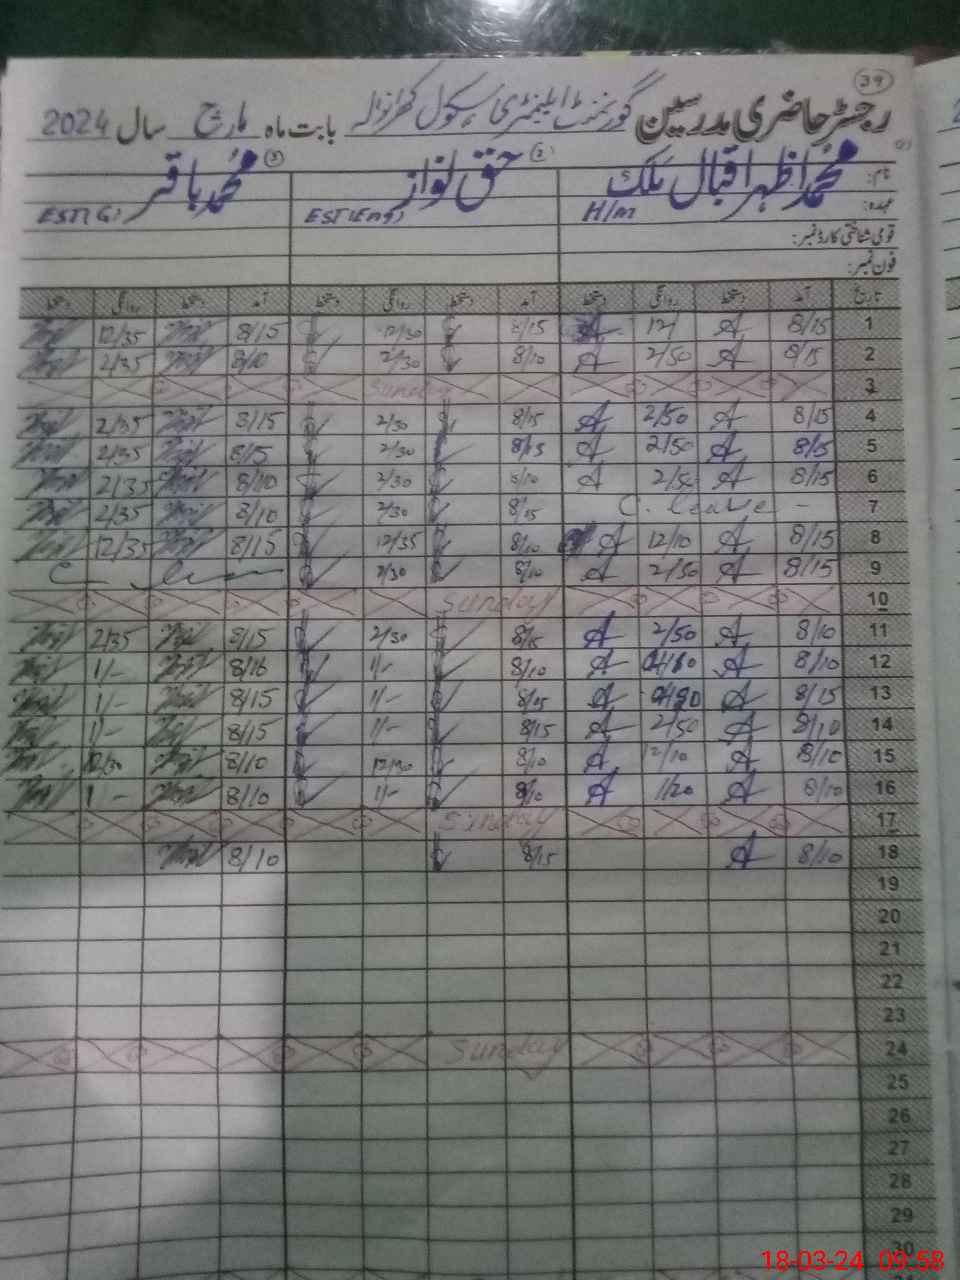 39
رجسٹر حاضری مدرسین گورنمنٹ ایلیمنٹری سکول بابت ماہ مارچ سال 2024
نام: محمد اظہر اقبال ملک (2) حق نواز (3) محمد باقر
عہدہ: H/m EST(Eng) EST(G)
قومی شناختی کارڈ نمبر:
فون نمبر:
تاریخ آمد دستخط روانگی دستخط آمد دستخط روانگی دستخط آمد دستخط روانگی دستخط
1 8/15 A 12/ A 8/15 12/30 8/15 12/35
2 8/15 A 2/50 A 8/10 2/30 8/10 2/35
3 Sunday
4 8/15 A 2/50 A 8/15 2/30 8/15 2/35
5 8/15 A 2/50 A 8/15 2/30 8/15 2/35
6 8/15 A 2/50 A 8/10 2/30 8/10 2/35
7 C. leave - 8/15 2/30 8/10 2/35
8 8/15 A 12/10 A 8/10 12/35 8/15 12/35
9 8/15 A 2/50 A 8/10 2/30
10 Sunday
11 8/10 A 2/50 A 8/15 2/30 8/15 2/35
12 8/10 A A 8/10 1/- 8/16 1/-
13 8/15 A A 8/15 1/- 8/15 1/-
14 8/10 A 2/50 A 8/15 1/- 8/15 1/-
15 8/10 A 12/10 A 8/10 12/30 8/10 12/30
16 8/10 A 1/20 A 8/10 1/- 8/10 1/-
17 Sunday
18 8/10 A 8/15 8/10
19
20
21
22
23
24 Sunday
25
26
27
28
29
30
18-03-24 09:58